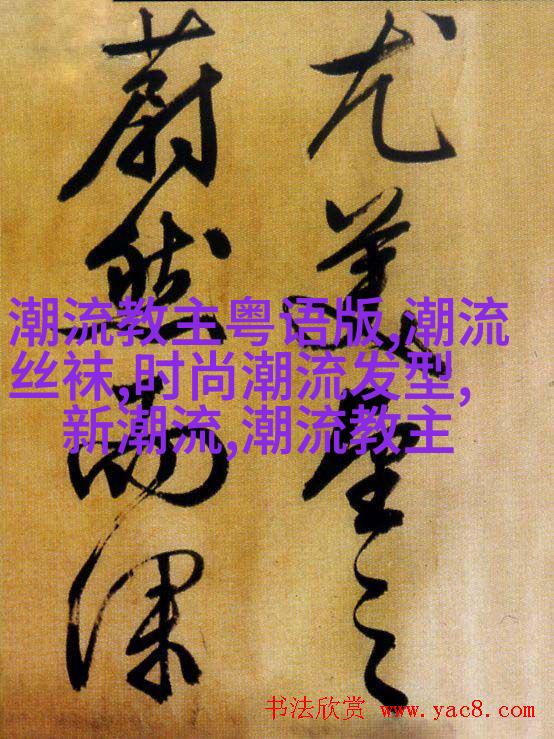 尤美望之
蔚然而深
潮流教主粤语版,潮流
丝袜,时尚潮流发型,
新潮流,潮流教主
书法欣赏 www.yac8.com